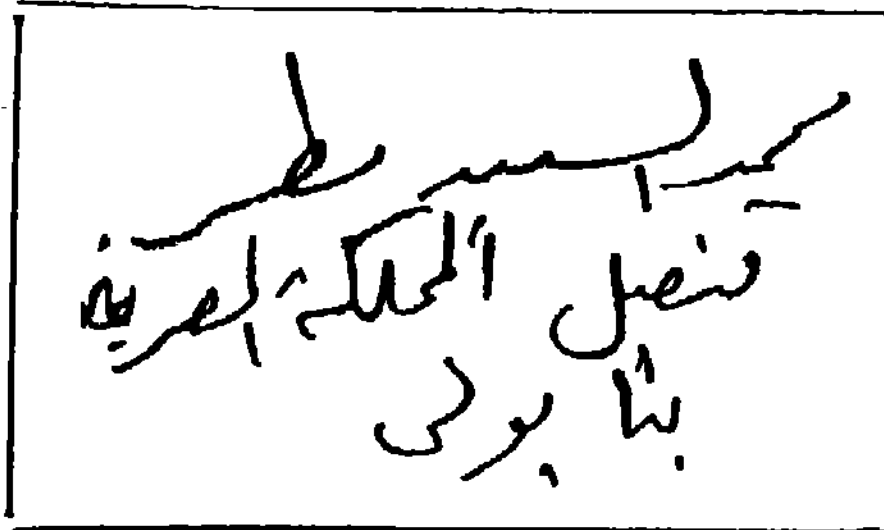 السيد
قنصل المملكة المصرية
بنابولى